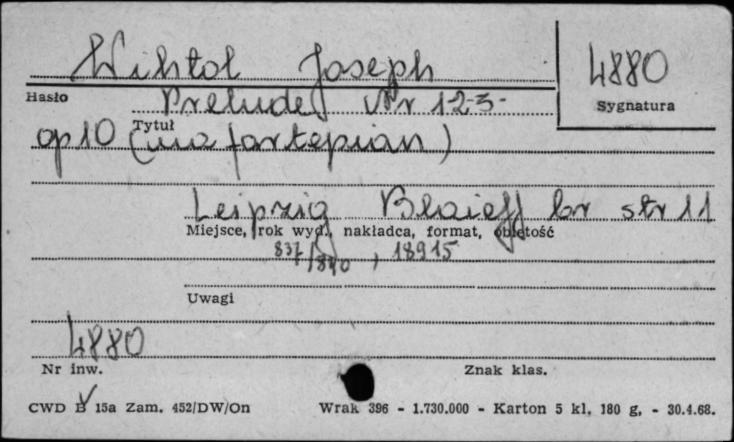 Wihtol Joseph
4880
Hasło
Preludes Nr 1-2-3-
Sygnatura
op 10 Tytuł (na fortepian)
Leipzig Belaieff br str 11
Miejsce, rok wyd., nakładca, format, objętość
837/840, 18915
Uwagi
4880
Nr inw.
Znak klas.
CWD B 15a Zam. 452/DW/On Wrak 396 - 1.730.000 - Karton 5 kl. 180 g. - 30.4.68.